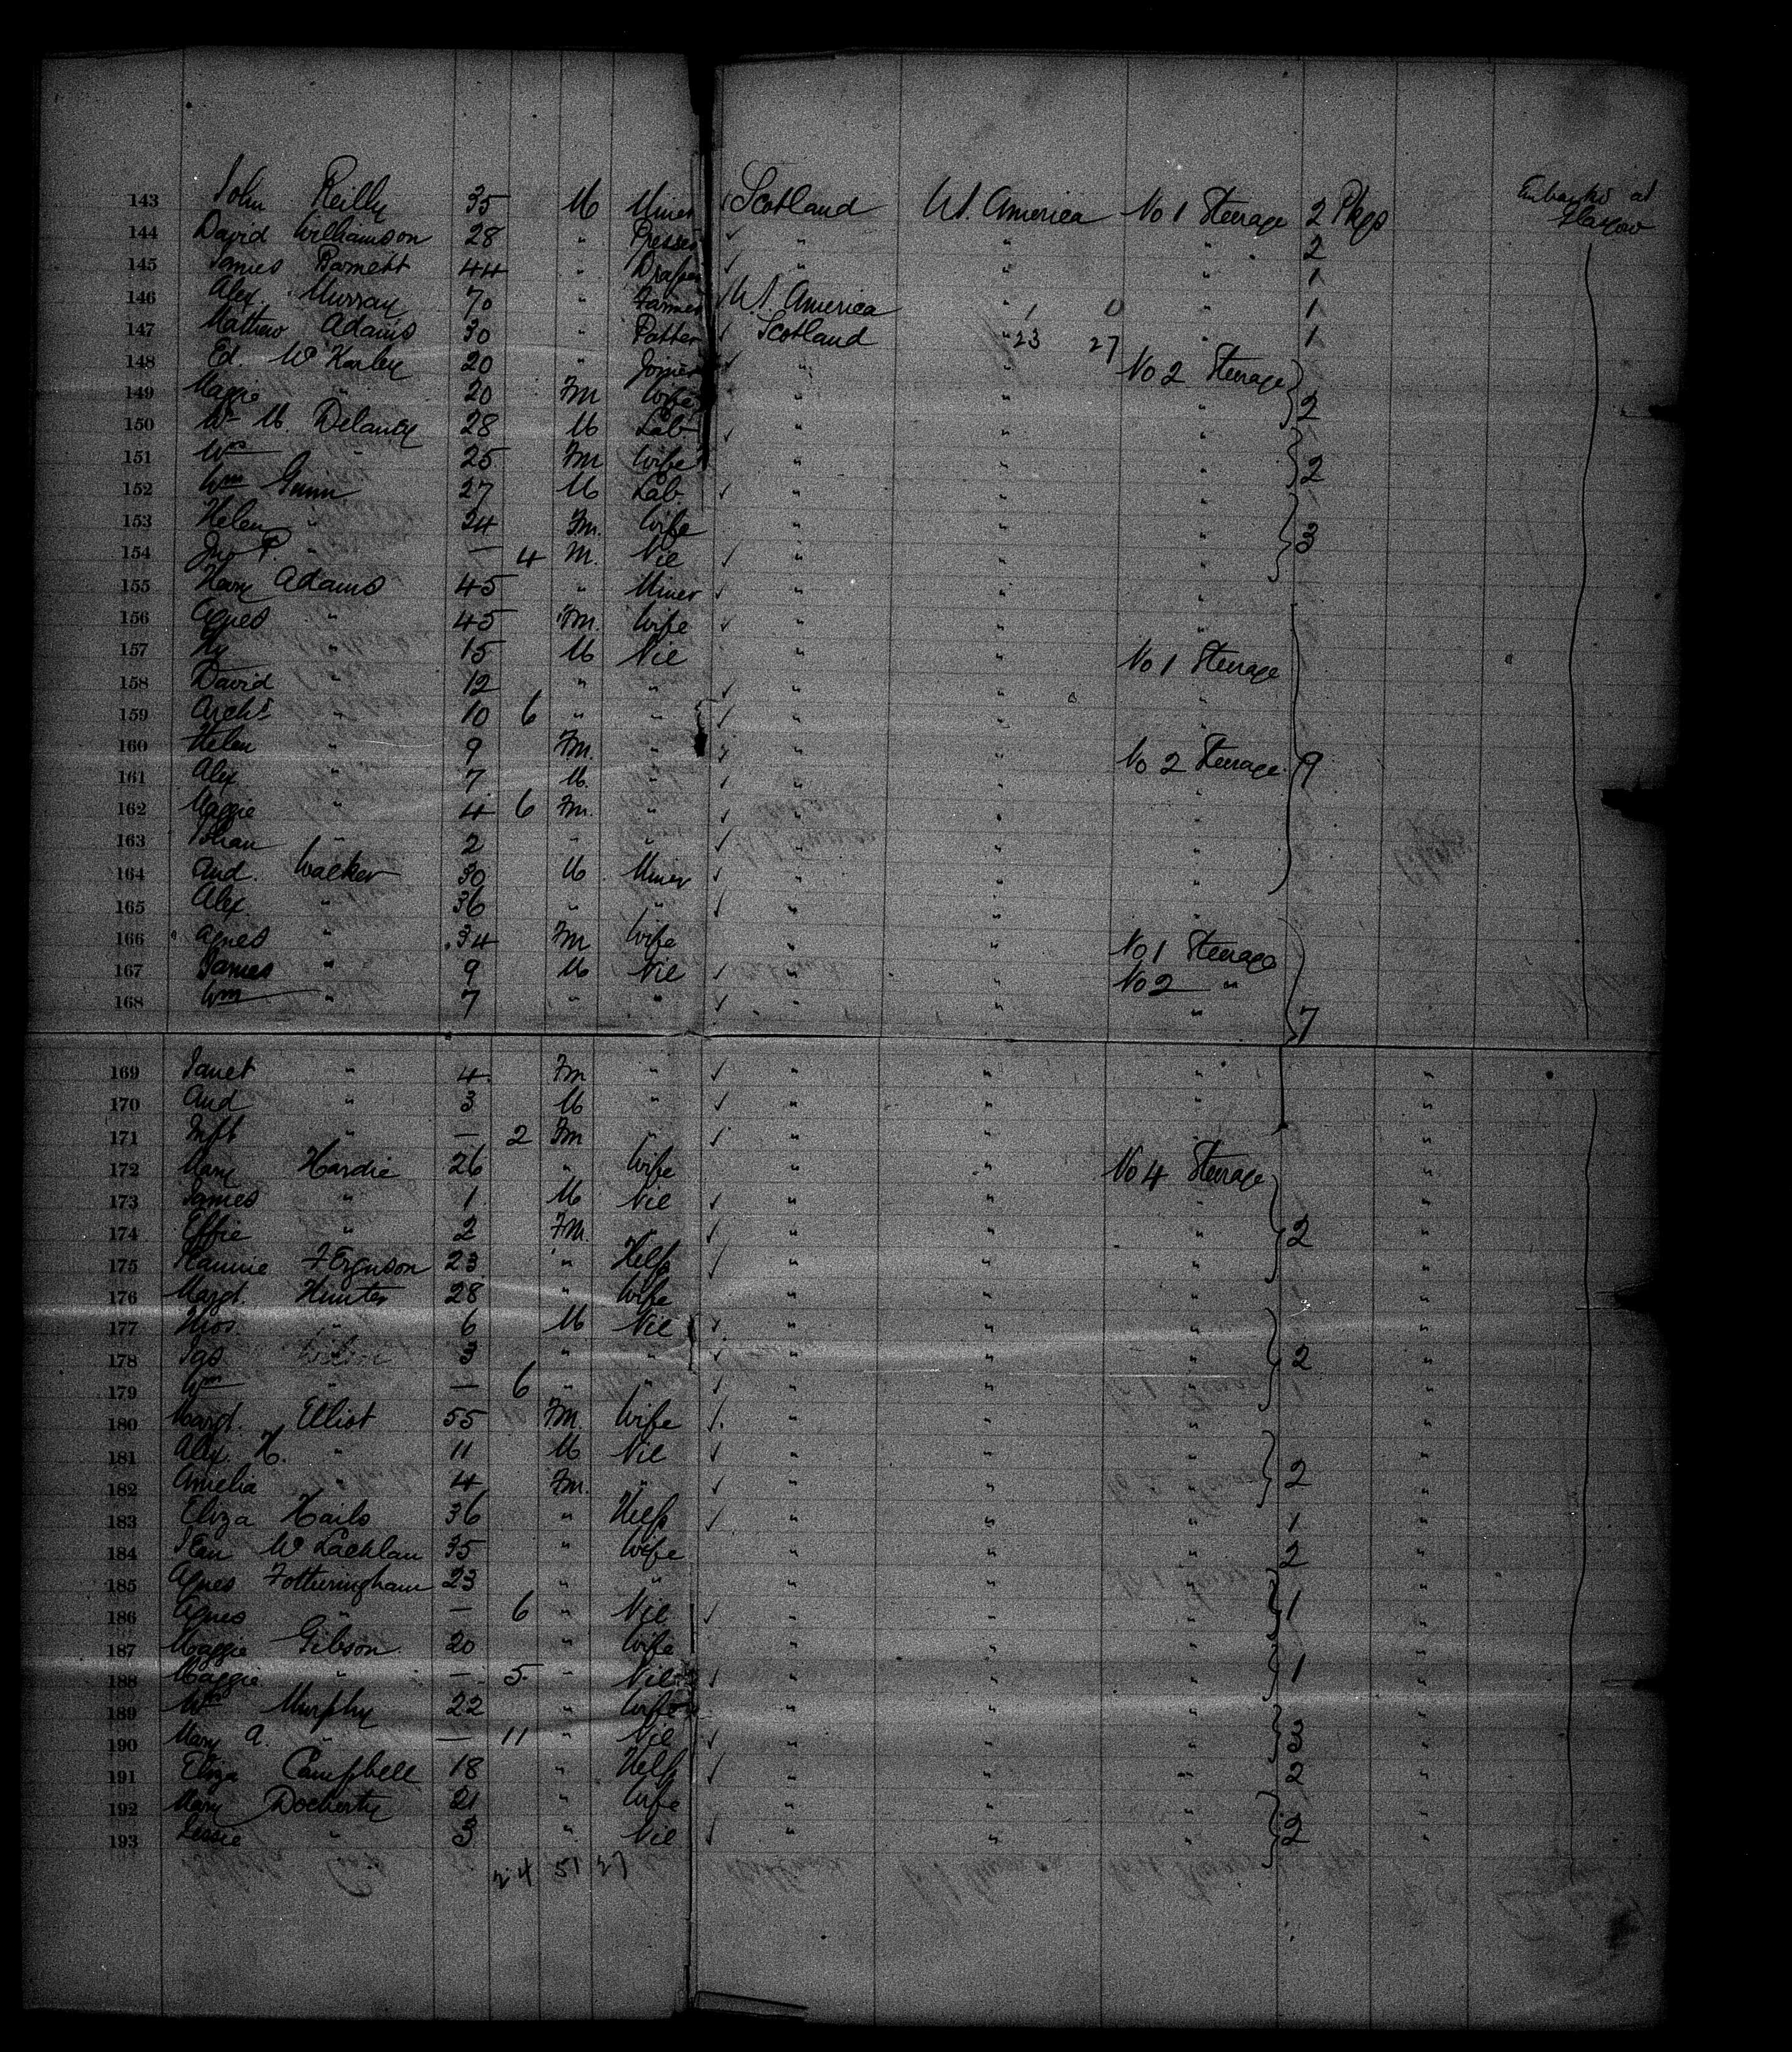 Embarks at
143 John Reilly 35 M Miner ✓ Scotland U.S. America No 1 Steerage 2 Pkgs Glasgow
144 David Williamson 28 " Presser ✓ " " " 2
145 James Barnett 44 " Draper ✓ " " " 1
146 Alex. Murray 70 " Farmer ✓ U.S. America " 1
147 Mathew Adams 30 " Patter ✓ Scotland " 23 27 " 1
148 Ed. McKarley 20 " Joiner ✓ " " No 2 Steerage
149 Maggie " 20 Fm Wife " " " 2
150 Wm M. Delancy 28 M Lab. ✓ " " "
151 25 Fm Wife " " " 2
152 Wm Gunn 27 M Lab. ✓ " " "
153 Helen " 24 Fm. Wife " " " 3
154 Jno P. " — 4 M. Nil ✓ " " "
155 Adams 45 " Miner ✓ " " "
156 Agnes " 45 Fm. Wife ✓ " " "
157 Hy " 15 M Nil " " No 1 Steerage
158 David " 12 " " ✓ " " "
159 Archd " 10 6 " " ✓ " " "
160 Helen " 9 Fm. " ✓ " " No 2 Steerage 9
161 Alex " 7 M. " ✓ " " "
162 Maggie " 4 6 Fm. " ✓ " " "
163 " 2 " " ✓ " " "
164 And. Walker 30 M Miner ✓ " " "
165 Alex. " 36 " " ✓ " " "
166 Agnes " 34 Fm Wife " " No 1 Steerage
167 James " 9 M Nil ✓ " " No 2 "
168 Wm " 7 " " ✓ " " " 7
169 Janet " 4 Fm " ✓ " " " "
170 And " 3 M " ✓ " " " "
171 Inft " — 2 Fm " ✓ " " "
172 Mary Hardie 26 " Wife " " No 4 Steerage "
173 James " 1 M Nil ✓ " " " "
174 Effie " 2 Fm. " ✓ " " " 2 "
175 Ferguson 23 " Help ✓ " " " "
176 Margt. Hunter 28 " Wife " " " "
177 Thos. " 6 M Nil ✓ " " " "
178 Jas 3 " " ✓ " " " 2 "
179 Wm " — 6 " " ✓ " " " "
180 Margt. Elliot 55 Fm. Wife ✓ " " " "
181 Alex. H. " 11 M Nil ✓ " " " "
182 Amelia " 4 Fm. " ✓ " " " 2 "
183 Eliza Hails 36 " Help ✓ " " " 1 "
184 Jean McLachlan 35 " Wife " " " 2 "
185 Agnes Fotheringham 23 " " " " " "
186 Agnes " — 6 " Nil ✓ " " " 1 "
187 Maggie Gibson 20 " Wife " " " "
188 Maggie " — 5 " Nil ✓ " " " 1 "
189 Murphy 22 " Wife " " " "
190 Mary A. " — 11 " Nil ✓ " " " 3 "
191 Eliza Campbell 18 " Help ✓ " " " 2 "
192 Mary Docherty 21 " Wife " " " "
193 Lizzie " 3 " Nil ✓ " " " 2 "
24 51 27